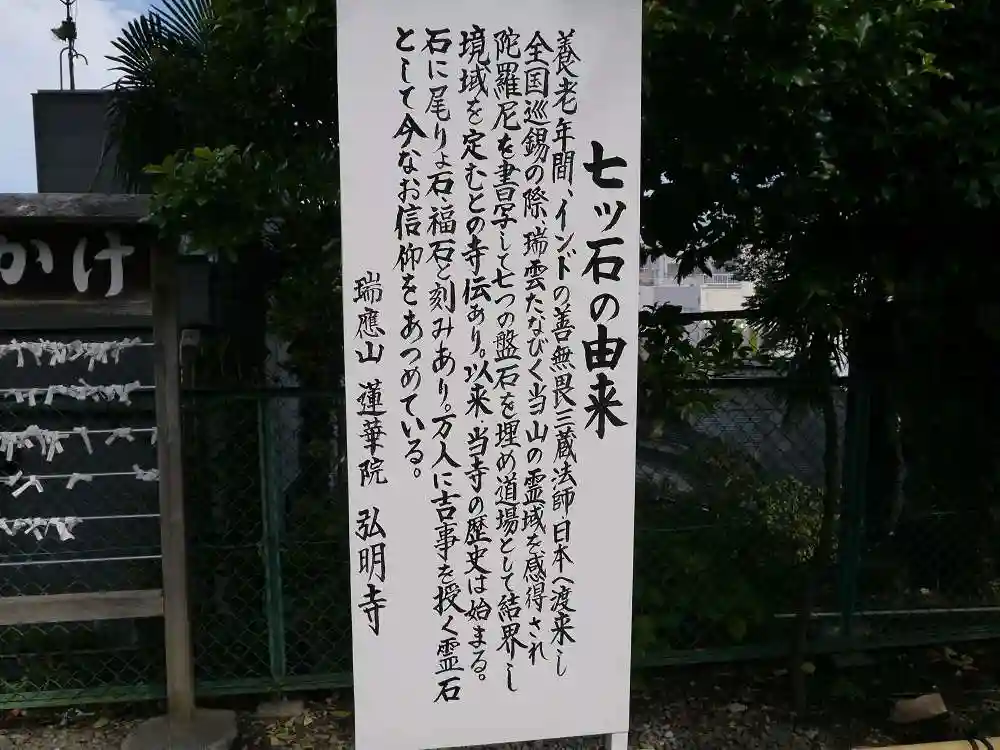 七ッ石の由来
養老年間、インドの善無畏三蔵法師、日本へ渡来し
全国巡錫の際、瑞雲たなびく当山の霊域を感得され
陀羅尼を書写して七つの盤石を埋め道場として結界し
境域を定むとの寺伝あり。以来、当寺の歴史は始まる。
石に尾りょ石、福石と刻みあり。万人に吉事を授く霊石
として今なお信仰をあつめている。
瑞應山 蓮華院 弘明寺
かけ